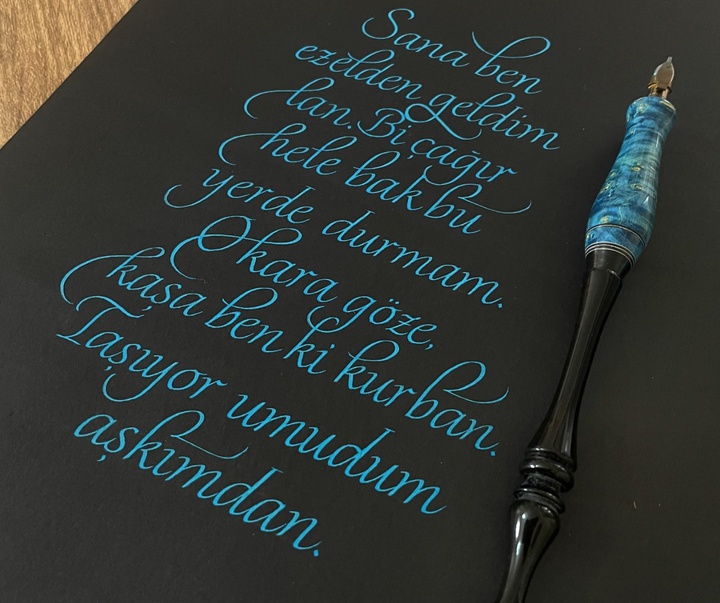 Sana ben
ezelden geldim
lan. Bi çağır
hele bak bu
yerde durmam.
O kara göze,
kaşa ben ki kurban.
Taşıyor umudum
aşkımdan.